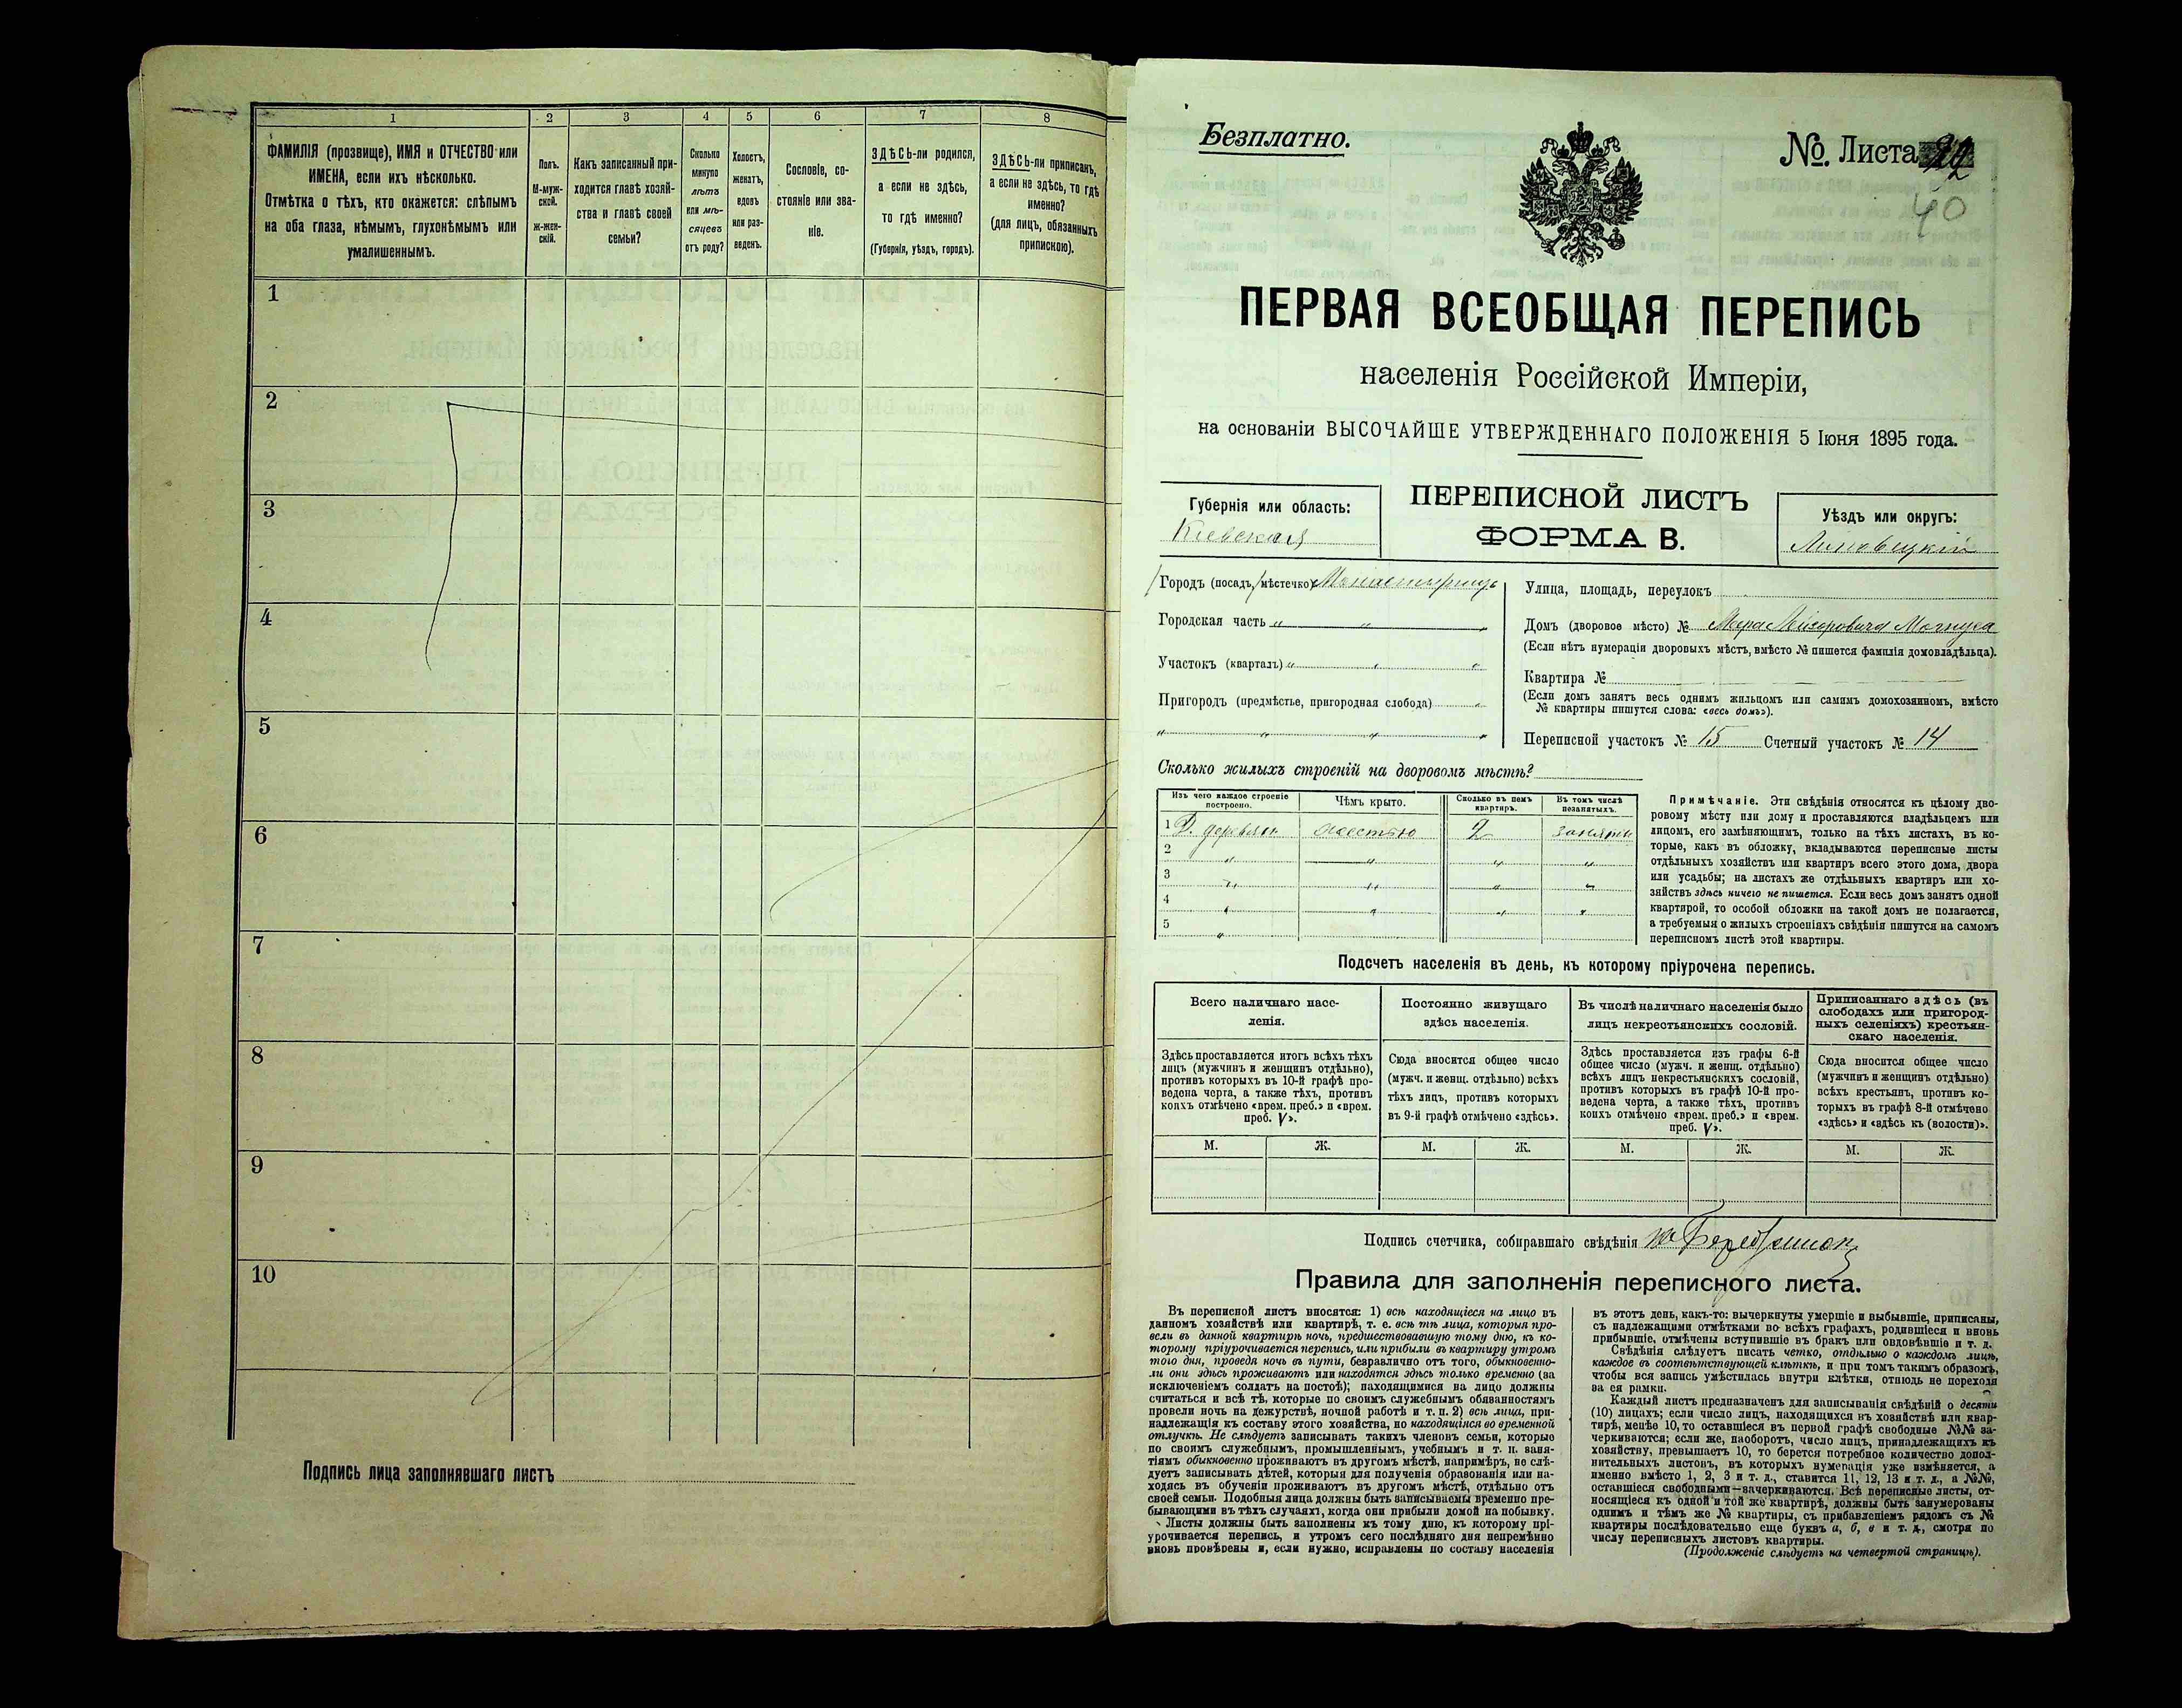 1 2 3 4 5 6 7 8
ФАМИЛІЯ (прозвище), ИМЯ и ОТЧЕСТВО или
ИМЕНА, если ихъ нѣсколько.
Отмѣтка о тѣхъ, кто окажется: слѣпымъ
на оба глаза, нѣмымъ, глухонѣмымъ или
умалишеннымъ.
Полъ.
М-муж-
ской.
ж-жен-
скій.
Какъ записанный при-
ходится главѣ хозяй-
ства и главѣ своей
семьи?
Сколько
минуло
лѣтъ
или мѣ-
сяцевъ
отъ роду?
Холостъ,
женатъ,
вдовъ
или раз-
веденъ.
Сословіе, со-
стояніе или зва-
ніе.
ЗДѢСЬ-ли родился,
а если не здѣсь,
то гдѣ именно?
(Губернія, уѣздъ, городъ).
ЗДѢСЬ-ли приписанъ,
а если не здѣсь, то гдѣ
именно?
(для лицъ, обязанныхъ
припискою).
1
2
3
4
5
6
7
8
9
10
Подпись лица заполнявшаго листъ
Безплатно.
№. Листа
40
ПЕРВАЯ ВСЕОБЩАЯ ПЕРЕПИСЬ
населенія Россійской Имперіи,
на основаніи ВЫСОЧАЙШЕ УТВЕРЖДЕННАГО ПОЛОЖЕНІЯ 5 Іюня 1895 года.
Губернія или область:
Кіевская
ПЕРЕПИСНОЙ ЛИСТЪ
ФОРМА В.
Уѣздъ или округъ:
Липовецкій
Городъ (посадъ, мѣстечко) Монастырище
Городская часть
Участокъ (кварталъ)
Пригородъ (предмѣстье, пригородная слобода)
Улица, площадь, переулокъ
Домъ (дворовое мѣсто) № Мера Лейзеровича
(Если нѣтъ нумераціи дворовыхъ мѣстъ, вмѣсто № пишется фамилія домовладѣльца).
Квартира №
(Если домъ занятъ весь однимъ жильцомъ или самимъ домохозяиномъ, вмѣсто
№ квартиры пишутся слова: «весь домъ»).
Переписной участокъ № 15 Счетный участокъ № 14
Сколько жилыхъ строеній на дворовомъ мѣстѣ?
Изъ чего каждое строеніе
построено.
Чѣмъ крыто.
Сколько въ немъ
квартиръ.
Въ томъ числѣ
незанятыхъ.
1 деревян. жестью 2 заняты
2
3
4
5
Примѣчаніе. Эти свѣдѣнія относятся къ цѣлому дво-
ровому мѣсту или дому и проставляются владѣльцемъ или
лицомъ, его замѣняющимъ, только на тѣхъ листахъ, въ ко-
торые, какъ въ обложку, вкладываются переписные листы
отдѣльныхъ хозяйствъ или квартиръ всего этого дома, двора
или усадьбы; на листахъ же отдѣльныхъ квартиръ или хо-
зяйствъ здѣсь ничего не пишется. Если весь домъ занятъ одной
квартирой, то особой обложки на такой домъ не полагается,
а требуемыя о жилыхъ строеніяхъ свѣдѣнія пишутся на самомъ
переписномъ листѣ этой квартиры.
Подсчетъ населенія въ день, къ которому пріурочена перепись.
Всего наличнаго насе-
ленія.
Здѣсь проставляется итогъ всѣхъ тѣхъ
лицъ (мужчинъ и женщинъ отдѣльно),
противъ которыхъ въ 10-й графѣ про-
ведена черта, а также тѣхъ, противъ
коихъ отмѣчено «врем. преб.» и «врем.
преб. V».
Постоянно живущаго
здѣсь населенія.
Сюда вносится общее число
(мужч. и женщ. отдѣльно) всѣхъ
тѣхъ лицъ, противъ которыхъ
въ 9-й графѣ отмѣчено «здѣсь».
Въ числѣ наличнаго населенія было
лицъ некрестьянскихъ сословій.
Здѣсь проставляется изъ графы 6-й
общее число (мужч. и женщ. отдѣльно)
всѣхъ лицъ некрестьянскихъ сословій,
противъ которыхъ въ графѣ 10-й про-
ведена черта, а также тѣхъ, противъ
коихъ отмѣчено «врем. преб.» и «врем.
преб. V».
Приписаннаго здѣсь (въ
слободахъ или пригород-
ныхъ селеніяхъ) крестьян-
скаго населенія.
Сюда вносится общее число
(мужчинъ и женщинъ отдѣльно)
всѣхъ крестьянъ, противъ ко-
торыхъ въ графѣ 8-й отмѣчено
«здѣсь» и «здѣсь къ (волости)».
М. Ж. М. Ж. М. Ж. М. Ж.
Подпись счетчика, собиравшаго свѣдѣнія
Правила для заполненія переписного листа.
Въ переписной листъ вносятся: 1) всѣ находящіеся на лицо въ
данномъ хозяйствѣ или квартирѣ, т. е. всѣ тѣ лица, которыя про-
вели въ данной квартирѣ ночь, предшествовавшую тому дню, къ ко-
торому пріурочивается перепись, или прибыли въ квартиру утромъ
того дня, проведя ночь въ пути, безразлично отъ того, обыкновенно-
ли они здѣсь проживаютъ или находятся здѣсь только временно (за
исключеніемъ солдатъ на постоѣ); находящимися на лицо должны
считаться и всѣ тѣ, которые по своимъ служебнымъ обязанностямъ
провели ночь на дежурствѣ, ночной работѣ и т. п. 2) всѣ лица, при-
надлежащія къ составу этого хозяйства, но находящіяся во временной
отлучкѣ. Не слѣдуетъ записывать такихъ членовъ семьи, которые
по своимъ служебнымъ, промышленнымъ, учебнымъ и т. п. заня-
тіямъ обыкновенно проживаютъ въ другомъ мѣстѣ, напримѣръ, не слѣ-
дуетъ записывать дѣтей, которыя для полученія образованія или на-
ходясь въ обученіи проживаютъ въ другомъ мѣстѣ, отдѣльно отъ
своей семьи. Подобныя лица должны быть записываемы временно пре-
бывающими въ тѣхъ случаяхъ, когда они прибыли домой на побывку.
Листы должны быть заполнены къ тому дню, къ которому прі-
урочивается перепись, и утромъ сего послѣдняго дня непремѣнно
вновь провѣрены и, если нужно, исправлены по составу населенія
въ этотъ день, какъ-то: вычеркнуты умершіе и выбывшіе, приписаны,
съ надлежащими отмѣтками во всѣхъ графахъ, родившіеся и вновь
прибывшіе, отмѣчены вступившіе въ бракъ или овдовѣвшіе и т. д.
Свѣдѣнія слѣдуетъ писать четко, отдѣльно о каждомъ лицѣ,
каждое въ соотвѣтствующей клѣткѣ, и при томъ такимъ образомъ,
чтобы вся запись умѣстилась внутри клѣтки, отнюдь не переходя
за ея рамки.
Каждый листъ предназначенъ для записыванія свѣдѣній о десяти
(10) лицахъ; если число лицъ, находящихся въ хозяйствѣ или квар-
тирѣ, менѣе 10, то оставшіеся въ первой графѣ свободные №№ за-
черкиваются; если же, наоборотъ, число лицъ, принадлежащихъ къ
хозяйству, превышаетъ 10, то берется потребное количество допол-
нительныхъ листовъ, въ которыхъ нумерація уже измѣняется, а
именно вмѣсто 1, 2, 3 и т. д., ставится 11, 12, 13 и т. д., а №№,
оставшіеся свободными—зачеркиваются. Всѣ переписные листы, от-
носящіеся къ одной и той же квартирѣ, должны быть занумерованы
однимъ и тѣмъ же № квартиры, съ прибавленіемъ рядомъ съ №
квартиры послѣдовательно еще буквъ а, б, в и т. д., смотря по
числу переписныхъ листовъ квартиры.
(Продолженіе слѣдуетъ на четвертой страницѣ).